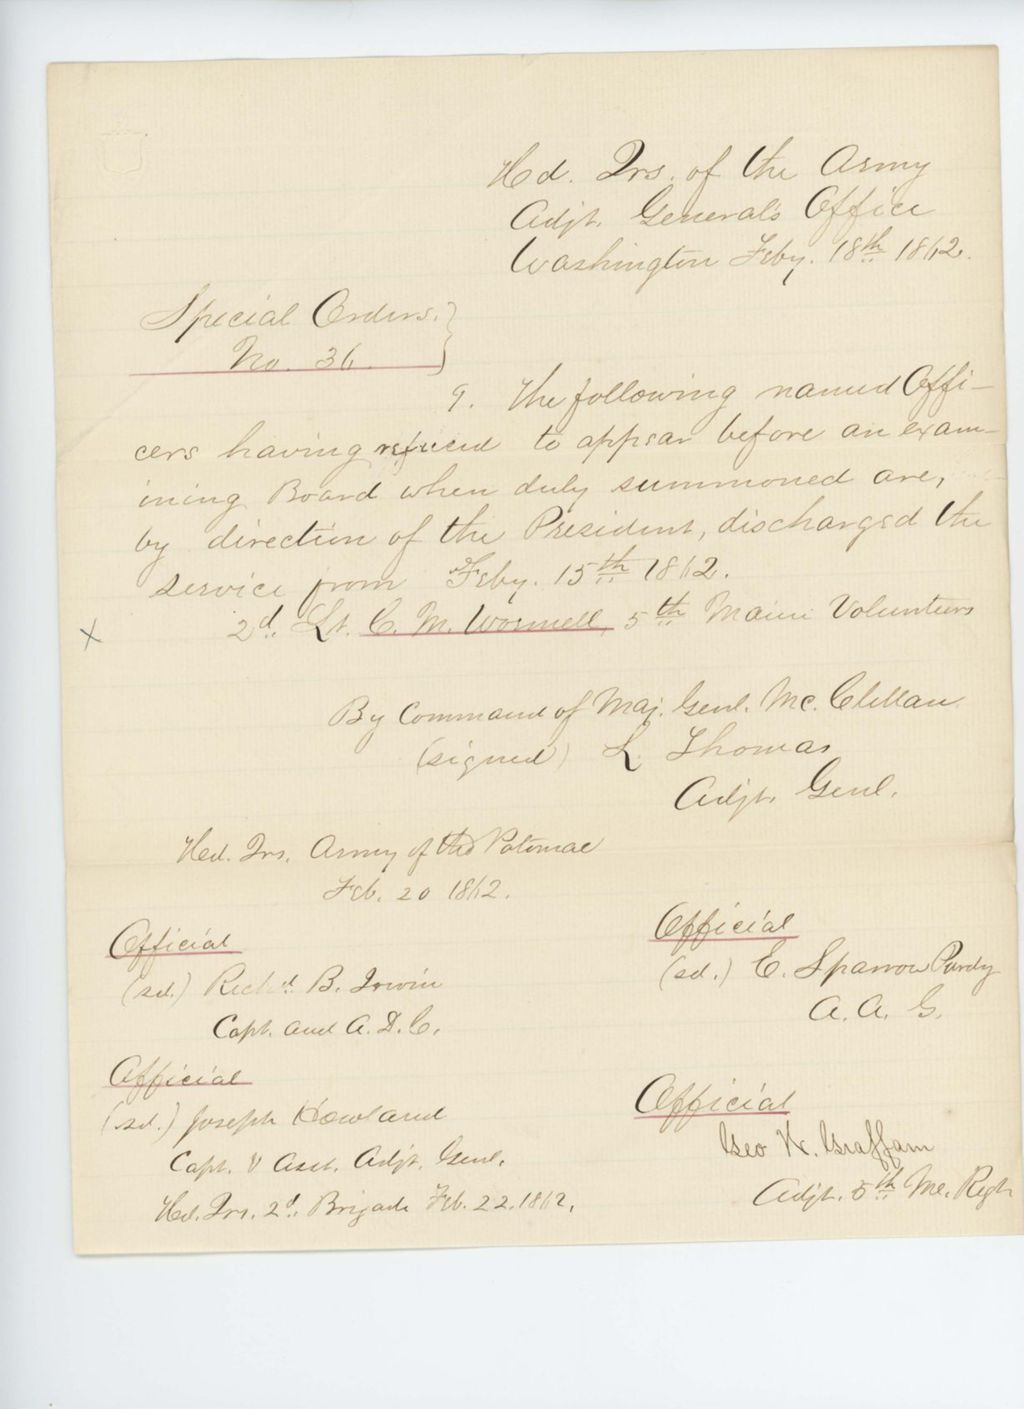 Hd. Qrs. of the Army
Adjt. General's Office
Washington Feby. 18th 1862.
Special Orders. }
No. 36.
9. The following named Offi-
cers having refused to appear before an exam-
ining Board when duly summoned are,
by direction of the President, discharged the
service from Feby. 15th 1862.
x 2d. Lt. C. M. Wormell, 5th Maine Volunteers
By Command of Maj. Genl. Mc. Clellan.
(signed) L. Thomas
Adjt. Genl.
Hed. Qrs. Army of the Potomac
Feb. 20 1862.
Official
(sd.) Richd. B. Irwin
Capt. and A. D. C.
Official
(sd.) E. Sparrow Purdy
A. A. G.
Official
(sd.) Joseph Howland
Capt. & Asst. Adjt. Genl.
Hed. Qrs. 2d. Brigade Feb. 22. 1862.
Official
Geo W. Graffam
Adjt. 5th Me. Regt